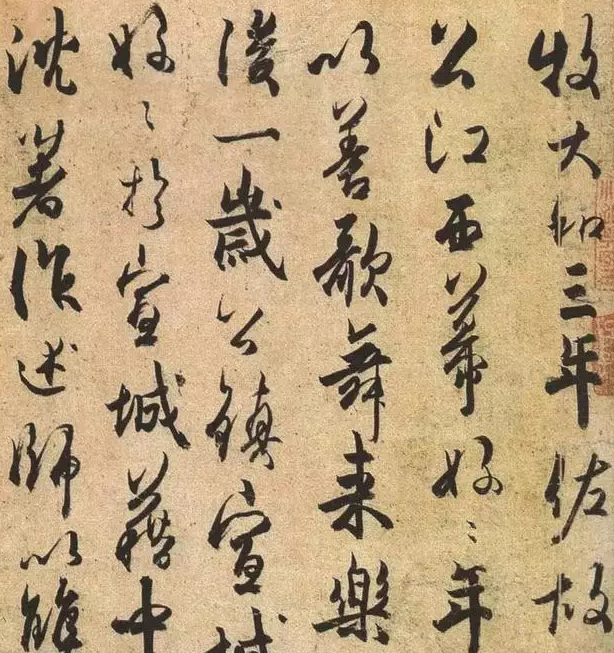 牧大和三年佐故
公江西幕好〻年
以善歌舞来樂
後一歲公鎮宣城
好〻於宣城籍中
沈著作述師以雙